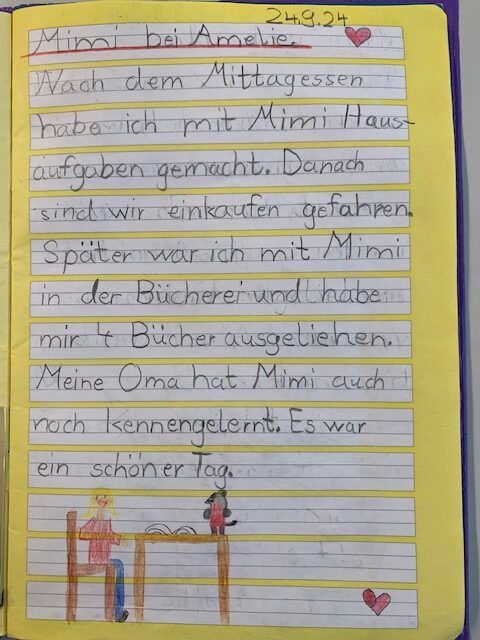 24.9.24
Mimi bei Amelie.
Nach dem Mittagessen
habe ich mit Mimi Haus-
aufgaben gemacht. Danach
sind wir einkaufen gefahren.
Später war ich mit Mimi
in der Bücherei und habe
mir 4 Bücher ausgeliehen.
Meine Oma hat Mimi auch
noch kennengelernt. Es war
ein schöner Tag.